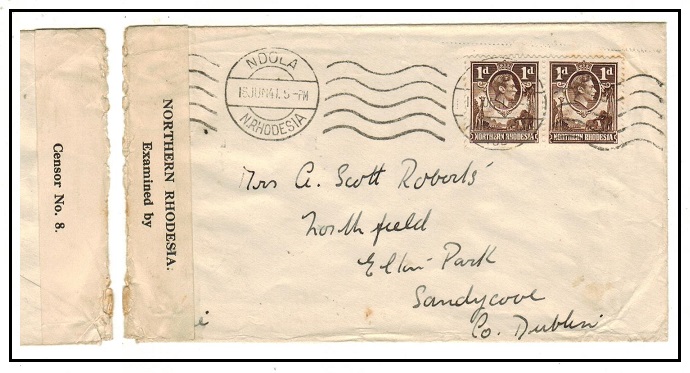 Censor No. 8.
NORTHERN RHODESIA.
Examined by
NDOLA
18 JUN 41. 5 - PM
N. RHODESIA
1d 1d
NORTHERN RHODESIA
1d 1d
NORTHERN RHODESIA
Mrs A. Scott Roberts
Northfield
Park
Sandycove
Co. Dublin